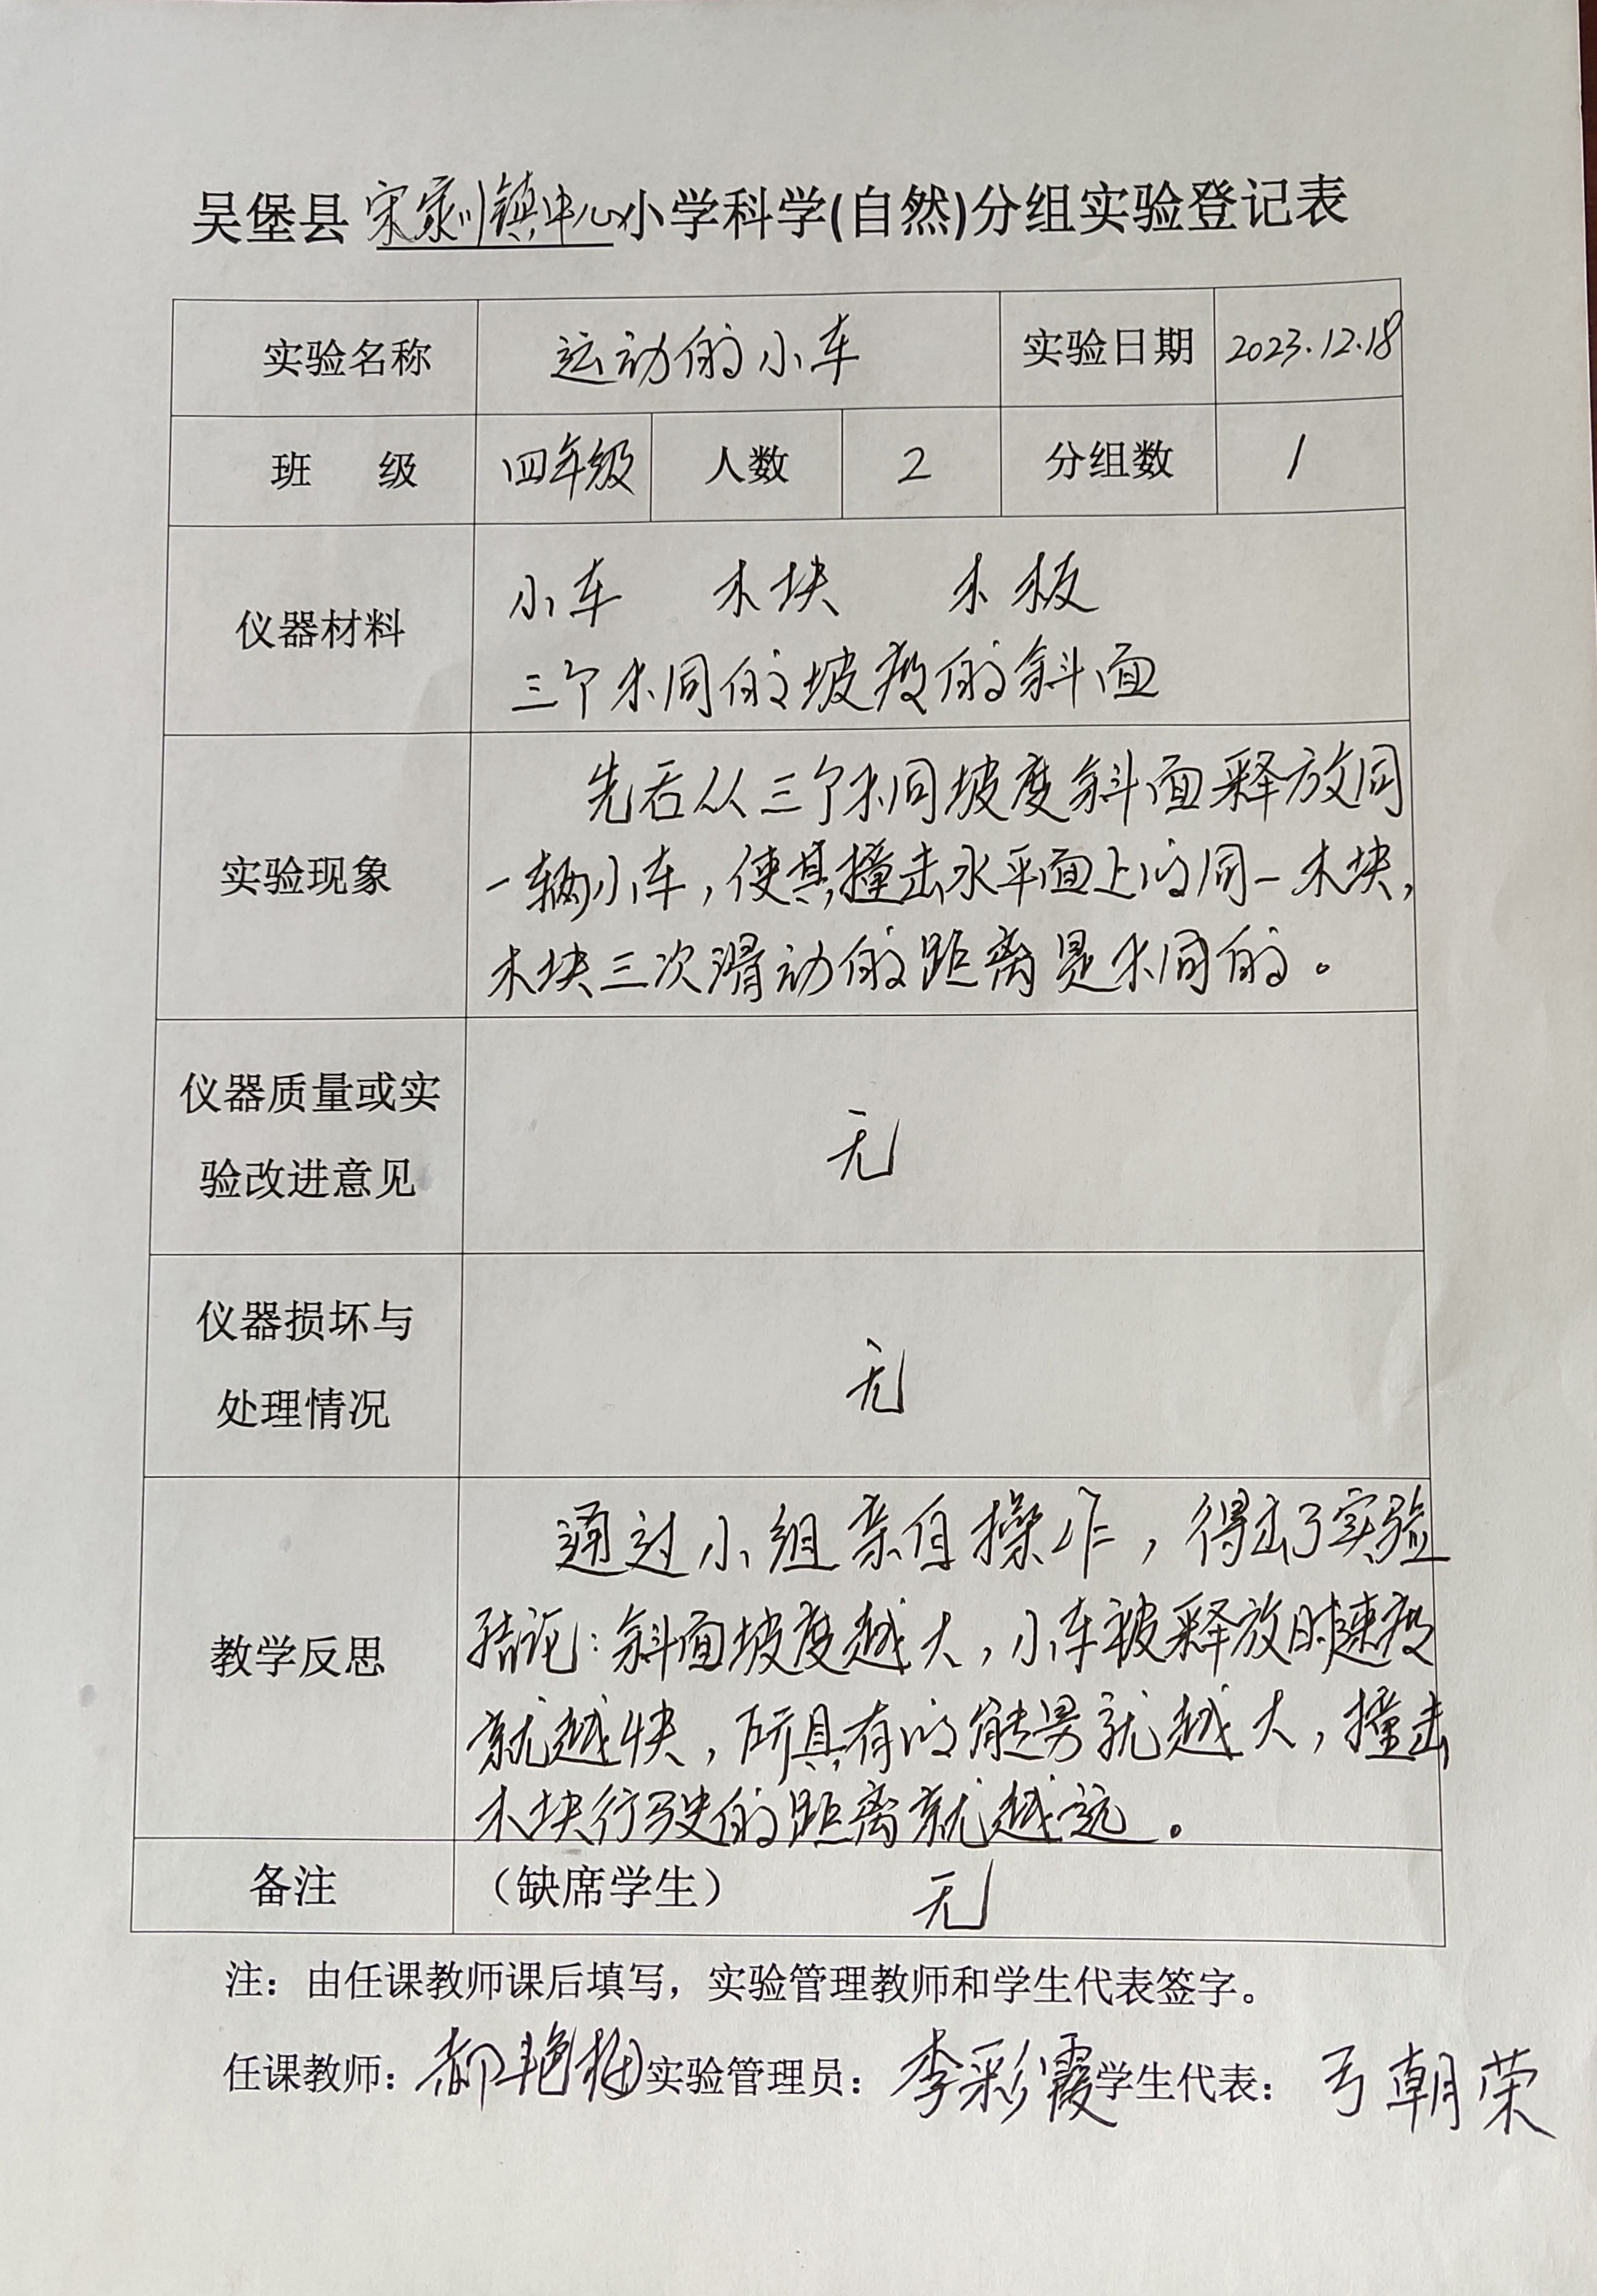 吴堡县 宋家川镇中心小学科学(自然)分组实验登记表
实验名称 运动的小车 实验日期 2023.12.18
班 级 四年级 人数 2 分组数 1
仪器材料
小车 木块 木板
三个不同的坡度的斜面
实验现象
先后从三个不同坡度斜面释放同
一辆小车，使其撞击水平面上的同一木块，
木块三次滑动的距离是不同的。
仪器质量或实
验改进意见
无
仪器损坏与
处理情况
无
教学反思
通过小组亲自操作，得出了实验
结论：斜面坡度越大，小车被释放时速度
就越快，所具有的能量就越大，撞击
木块行驶的距离就越远。
备注 （缺席学生） 无
注：由任课教师课后填写，实验管理教师和学生代表签字。
任课教师： 实验管理员：李彩霞 学生代表：弓朝荣